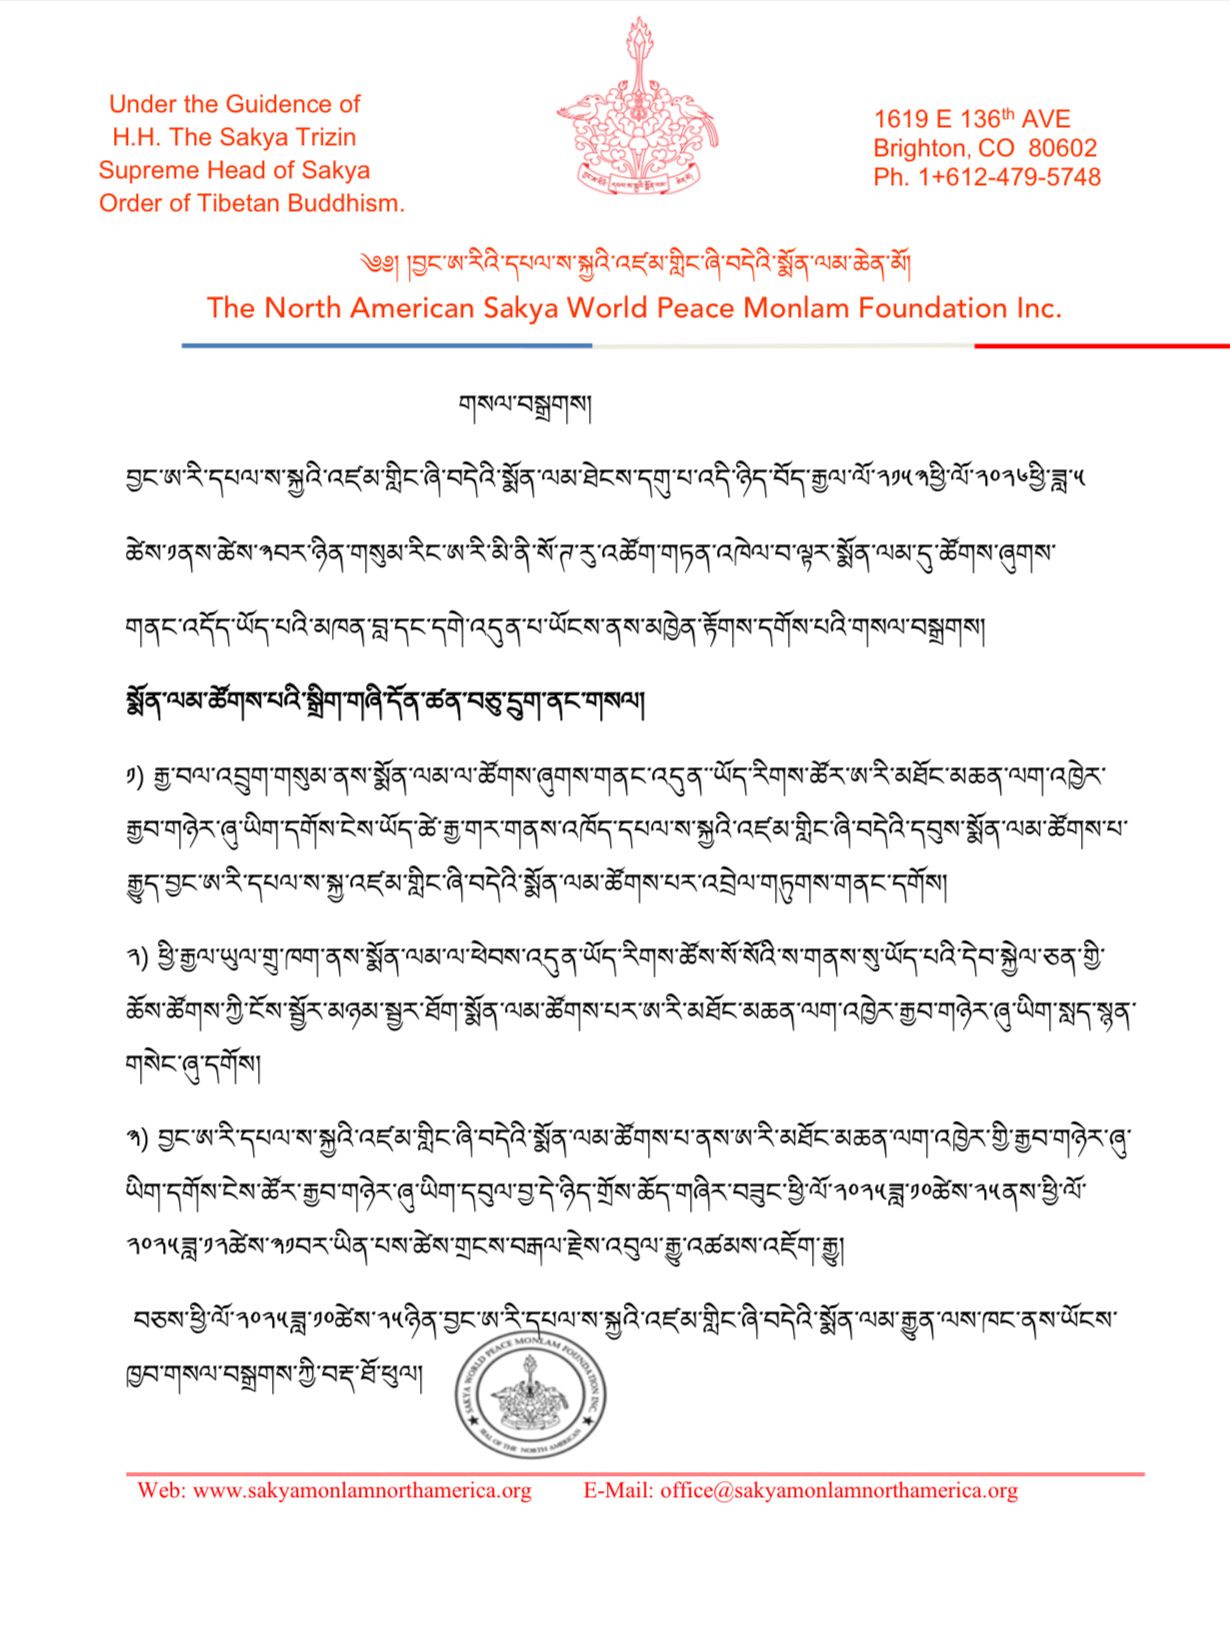 Under the Guidence of
H.H. The Sakya Trizin
Supreme Head of Sakya
Order of Tibetan Buddhism.
1619 E 136th AVE
Brighton, CO 80602
Ph. 1+612-479-5748
༄༅། །བྱང་ཨ་རིའི་དཔལ་ས་སྐྱའི་འཛམ་གླིང་ཞི་བདེའི་སྨོན་ལམ་ཆེན་མོ།
The North American Sakya World Peace Monlam Foundation Inc.
གསལ་བསྒྲགས།
བྱང་ཨ་རི་དཔལ་ས་སྐྱའི་འཛམ་གླིང་ཞི་བདེའི་སྨོན་ལམ་ཐེངས་དགུ་པ་འདི་ཉིད་བོད་རྒྱལ་ལོ་༢༡༥༣ཕྱི་ལོ་༢༠༢༦ཕྱི་ཟླ་༥
ཚེས་༡ནས་ཚེས་༣བར་ཉིན་གསུམ་རིང་ཨ་རི་མི་ནི་སོ་ཊ་རུ་འཚོག་གཏན་འཁེལ་བ་ལྟར་སྨོན་ལམ་དུ་ཚོགས་ཞུགས་
གནང་འདོད་ཡོད་པའི་མཁན་བླ་དང་དགེ་འདུན་པ་ཡོངས་ནས་མཁྱེན་རྟོགས་དགོས་པའི་གསལ་བསྒྲགས།
སྨོན་ལམ་ཚོགས་པའི་སྒྲིག་གཞི་དོན་ཚན་བཅུ་དྲུག་ནང་གསལ།
༡) རྒྱ་བལ་འབྲུག་གསུམ་ནས་སྨོན་ལམ་ལ་ཚོགས་ཞུགས་གནང་འདུན་ཡོད་རིགས་ཚོར་ཨ་རི་མཐོང་མཆན་ལག་འཁྱེར་
རྒྱབ་གཉེར་ཞུ་ཡིག་དགོས་ངེས་ཡོད་ཚེ་རྒྱ་གར་གནས་འཁོད་དཔལ་ས་སྐྱའི་འཛམ་གླིང་ཞི་བདེའི་དབུས་སྨོན་ལམ་ཚོགས་པ་
རྒྱུད་བྱང་ཨ་རི་དཔལ་ས་སྐྱ་འཛམ་གླིང་ཞི་བདེའི་སྨོན་ལམ་ཚོགས་པར་འབྲེལ་གཏུགས་གནང་དགོས།
༢) ཕྱི་རྒྱལ་ཡུལ་གྲུ་ཁག་ནས་སྨོན་ལམ་ལ་ཕེབས་འདུན་ཡོད་རིགས་ཚོས་སོ་སོའི་ས་གནས་སུ་ཡོད་པའི་དེབ་སྐྱེལ་ཅན་གྱི་
ཆོས་ཚོགས་ཀྱི་ངོས་སྦྱོར་མཉམ་སྦྱར་ཐོག་སྨོན་ལམ་ཚོགས་པར་ཨ་རི་མཐོང་མཆན་ལག་འཁྱེར་རྒྱབ་གཉེར་ཞུ་ཡིག་སླད་སྙན་
གསེང་ཞུ་དགོས།
༣) བྱང་ཨ་རི་དཔལ་ས་སྐྱའི་འཛམ་གླིང་ཞི་བདེའི་སྨོན་ལམ་ཚོགས་པ་ནས་ཨ་རི་མཐོང་མཆན་ལག་འཁྱེར་གྱི་རྒྱབ་གཉེར་ཞུ་
ཡིག་དགོས་ངེས་ཚོར་རྒྱབ་གཉེར་ཞུ་ཡིག་དབུལ་བྱ་དེ་ཉིད་གྲོས་ཆོད་གཞིར་བཟུང་ཕྱི་ལོ་༢༠༢༥ཟླ་༡༠ཚེས་༢༥ནས་ཕྱི་ལོ་
༢༠༢༥ཟླ་༡༢ཚེས་༣༡བར་ཡིན་པས་ཚེས་གྲངས་བརྒལ་རྗེས་འབུལ་རྒྱུ་འཚམས་འཇོག་རྒྱུ།
བཅས་ཕྱི་ལོ་༢༠༢༥ཟླ་༡༠ཚེས་༢༥ཉིན་བྱང་ཨ་རི་དཔལ་ས་སྐྱའི་འཛམ་གླིང་ཞི་བདེའི་སྨོན་ལམ་རྒྱུན་ལས་ཁང་ནས་ཡོངས་
ཁྱབ་གསལ་བསྒྲགས་ཀྱི་བརྡ་ཐོ་ཕུལ།
SAKYA WORLD PEACE MONLAM FOUNDATION INC.
SEAL OF THE NORTH AMERICAN
Web: www.sakyamonlamnorthamerica.org E-Mail: office@sakyamonlamnorthamerica.org